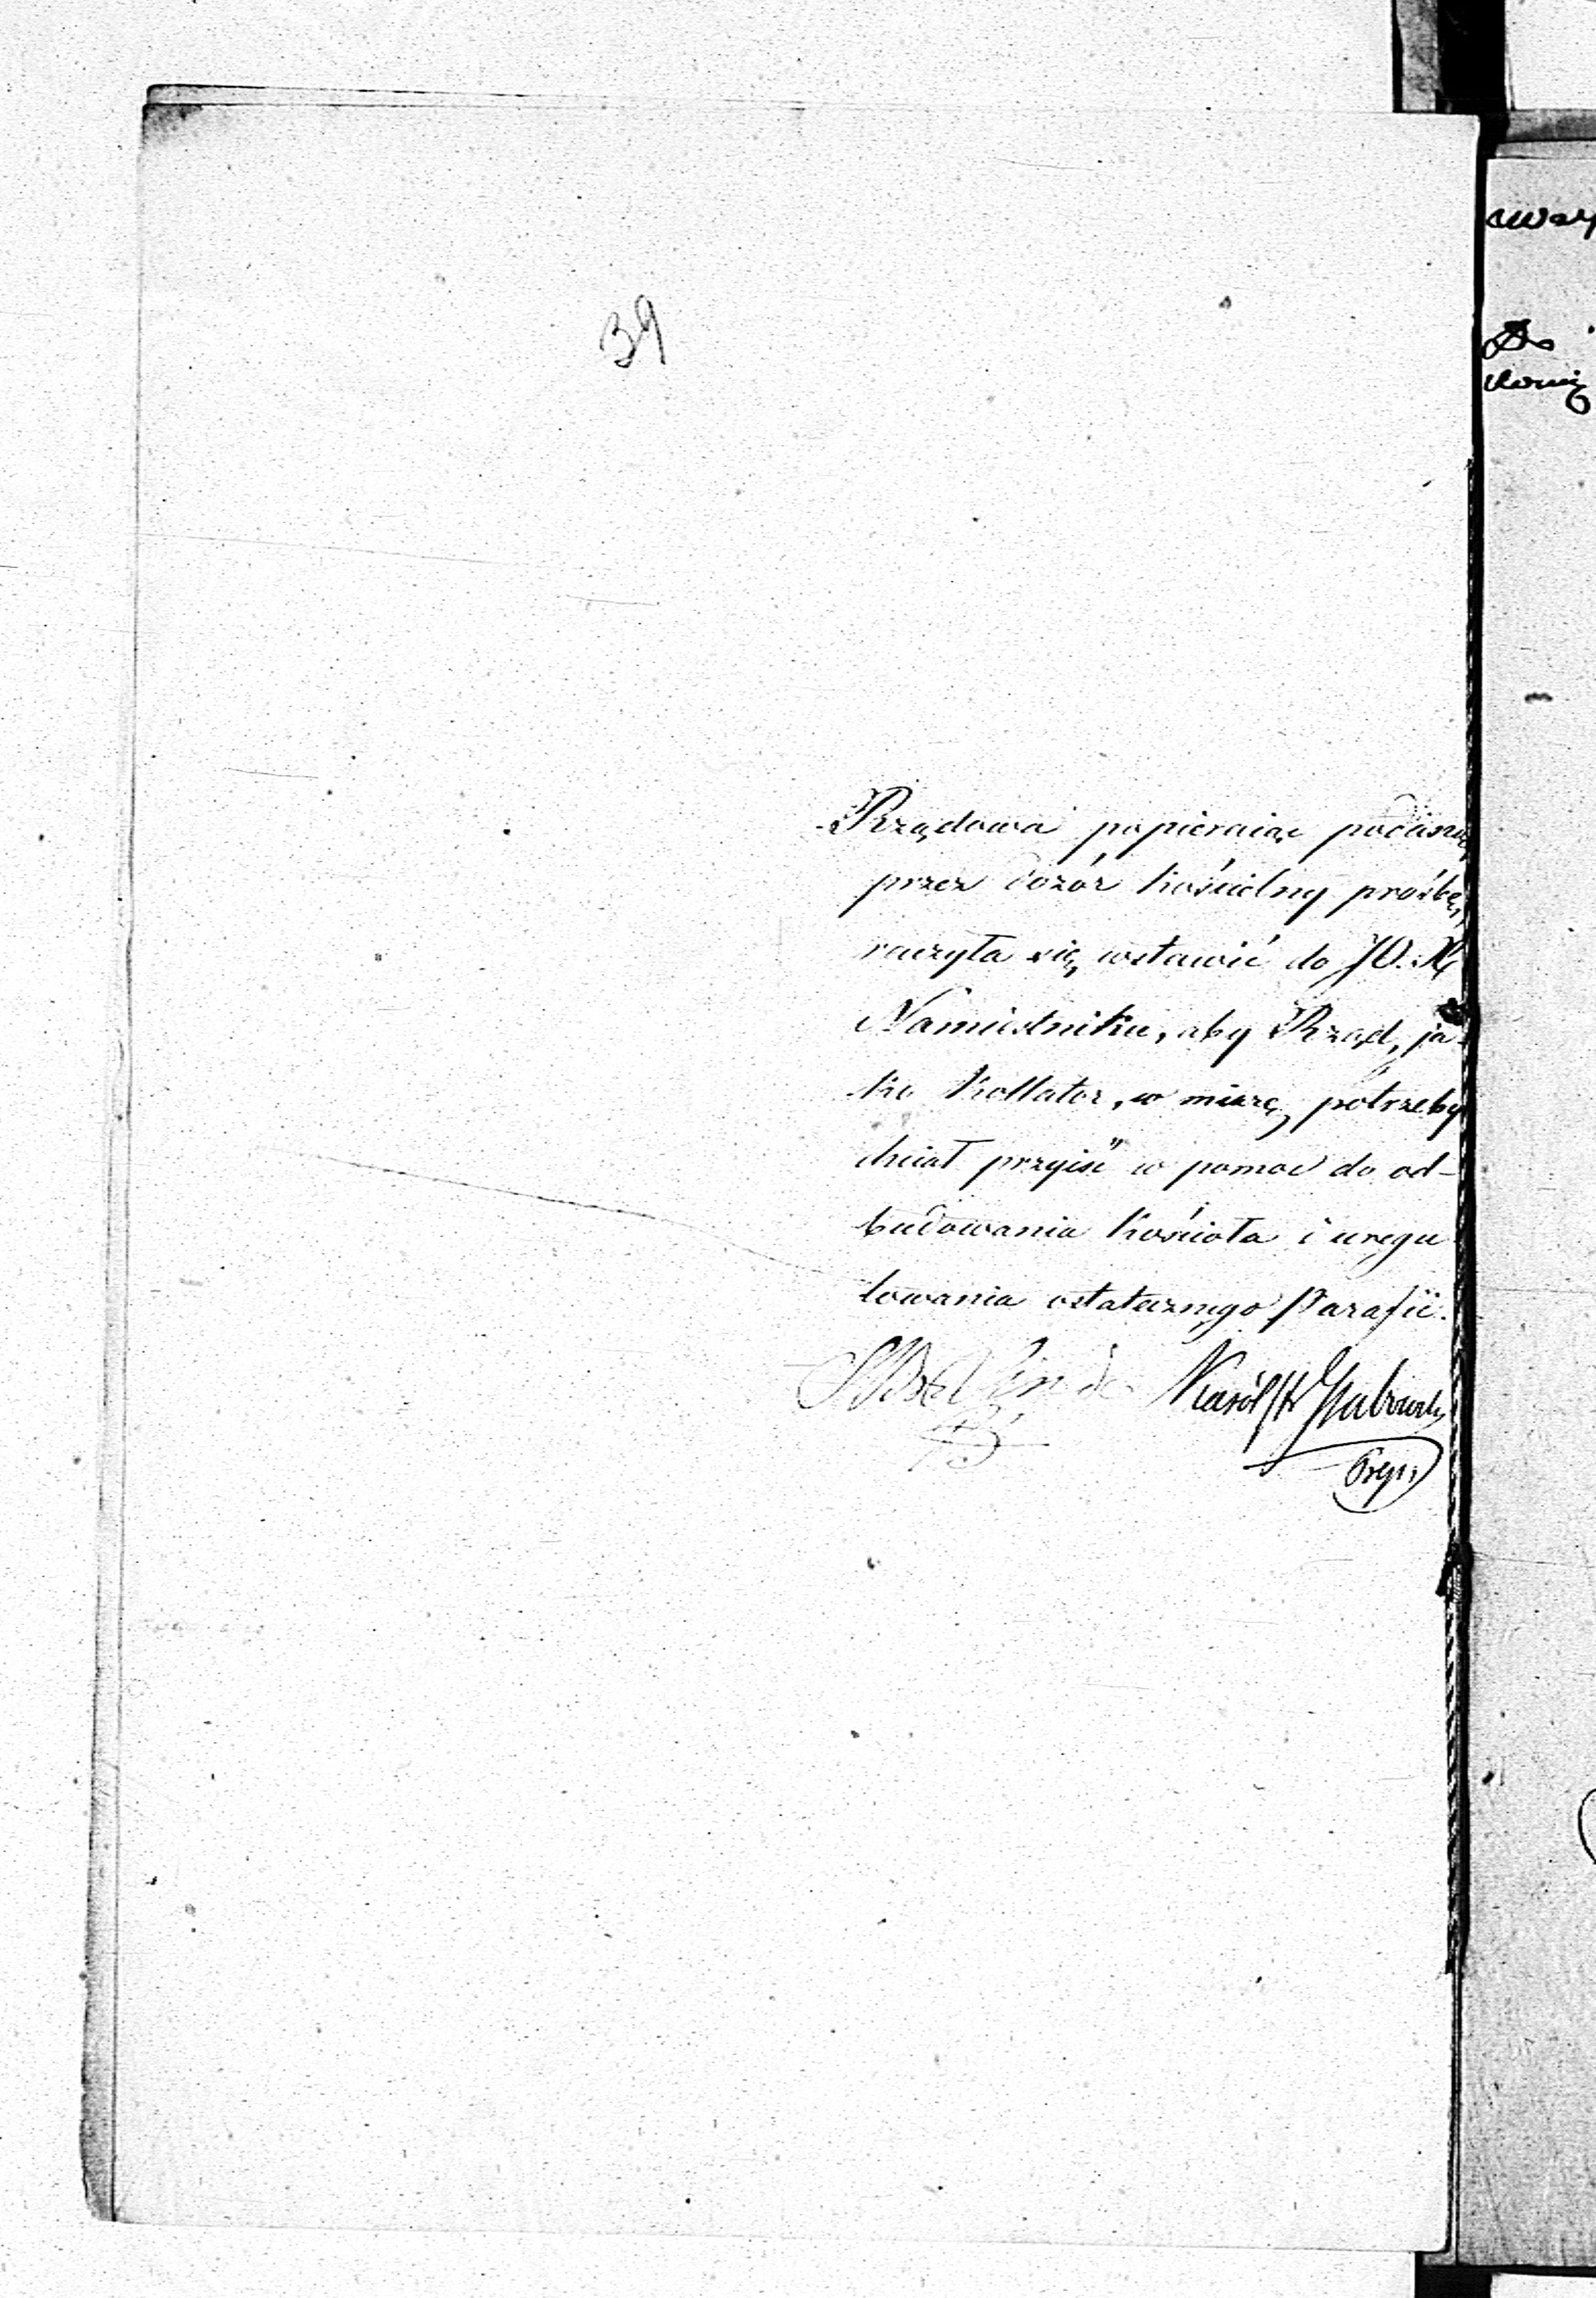 39
Rządowa popieraiąc podaną
przez dozór kościelny prośbę,
raczyła się wstawić do JO. X
Namiestnika, aby Rząd, ja-
ko Kollator, w miarę potrzeby
chciał przyiść w pomoc do od-
budowania kościoła i uregu
lowania ostatecznego Parafii.
Linde Karól
Do